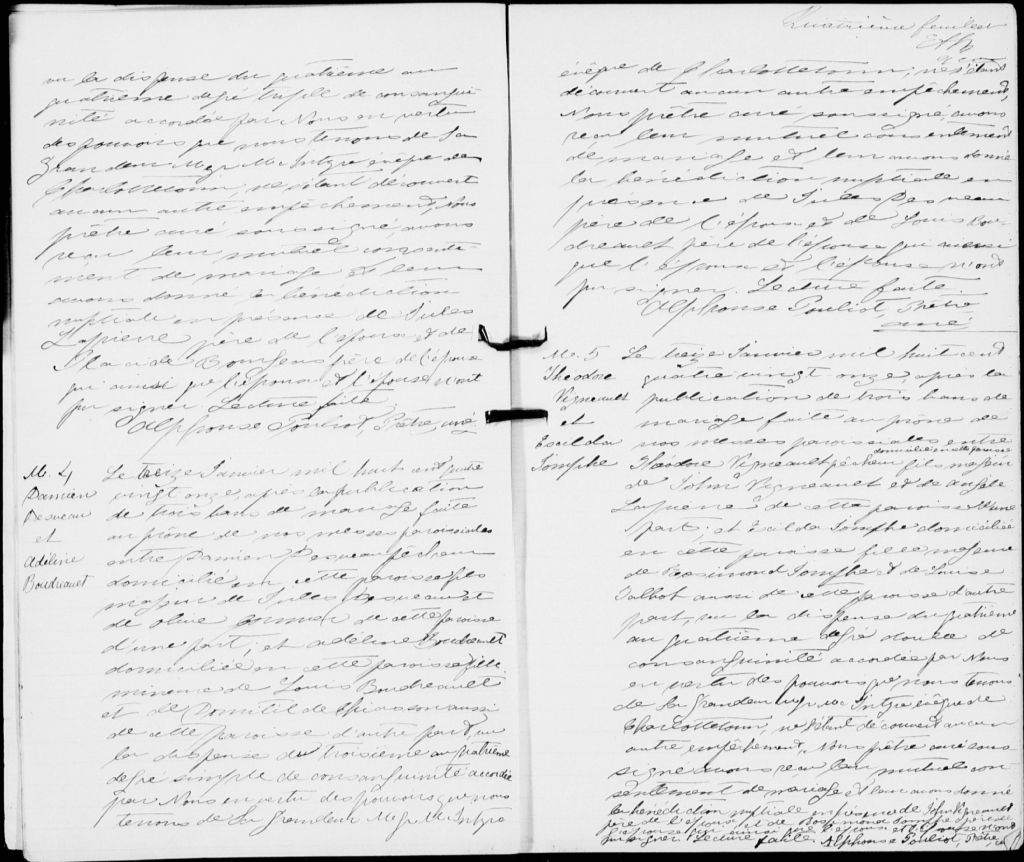 vu la dispense du quatrième au
quatrième degré triple de consangui-
nité accordée par Nous en vertu
des pouvoirs que nous tenons de Sa
Grandeur Mgr McIntyre évêque de
Charlottetown; ne s'étant découvert
aucun autre empêchement, Nous
prêtre curé soussigné, avons
reçu leur mutuel consente-
ment de mariage et leur
avons donné la bénédiction
nuptiale en présence de Jules
Lapierre père de l'époux et de
Placide Bourgeois père de l'épouse
qui ainsi que l'époux et l'épouse n'ont
pu signer. Lecture faite.
Alphonse Pouliot, Prêtre, curé
M. 4
Damien
Desveau
et
Adéline
Boudreault
Le treize Janvier mil huit cent quatre
vingt onze, après la publication
de trois bans de mariage faite
au prône de nos messes paroissiales
entre Damien Desveau pêcheur
domicilié en cette paroisse fils
majeur de Jules Desveau et
de Olive de cette paroisse
d'une part; et Adéline Boudreault
domiciliée en cette paroisse fille
mineure de Louis Boudreault
et de Domitilde Chiasson aussi
de cette paroisse d'autre part, vu
la dispense du troisième au quatrième
degré simple de consanguinité accordée
par Nous en vertu des pouvoirs que nous
tenons de Sa Grandeur Mgr McIntyre
Quatrième feuillet
évêque de Charlottetown; ne s'étant
découvert aucun autre empêchement,
Nous prêtre curé soussigné, avons
reçu leur mutuel consentement
de mariage et leur avons donné
la bénédiction nuptiale en
présence de Jules Desveau
père de l'époux et de Louis Bou-
dreault père de l'épouse qui ainsi
que l'époux et l'épouse n'ont
pu signer. Lecture faite.
Alphonse Pouliot, Prêtre
curé
M. 5
Théodore
Vigneault
et
Exilda
Jomphe
Le treize Janvier mil huit cent
quatre vingt onze, après la
publication de trois bans de
mariage faite au prône de
nos messes paroissiales entre
domicilié en cette paroisse
Théodore Vigneault pêcheur fils majeur
de John Vigneault et de Angèle
Lapierre de cette paroisse d'une
part; et Exilda Jomphe domiciliée
en cette paroisse fille majeure
de Rosimond Jomphe et de Louise
Talbot aussi de cette paroisse d'autre
part, vu la dispense du quatrième
au quatrième degré double de
consanguinité accordée par Nous
en vertu des pouvoirs que nous tenons
de Sa Grandeur Mgr McIntyre évêque de
Charlottetown, ne s'étant découvert aucun
autre empêchement, Nous prêtre curé sous-
signé avons reçu leur mutuel con-
sentement de mariage et leur avons donné
la bénédiction nuptiale en présence de John Vigneault
père de l'époux et de Rosimond Jomphe père de
l'épouse qui ainsi que l'époux et l'épouse n'ont
pu signer. Lecture faite. Alphonse Pouliot, Prêtre, curé